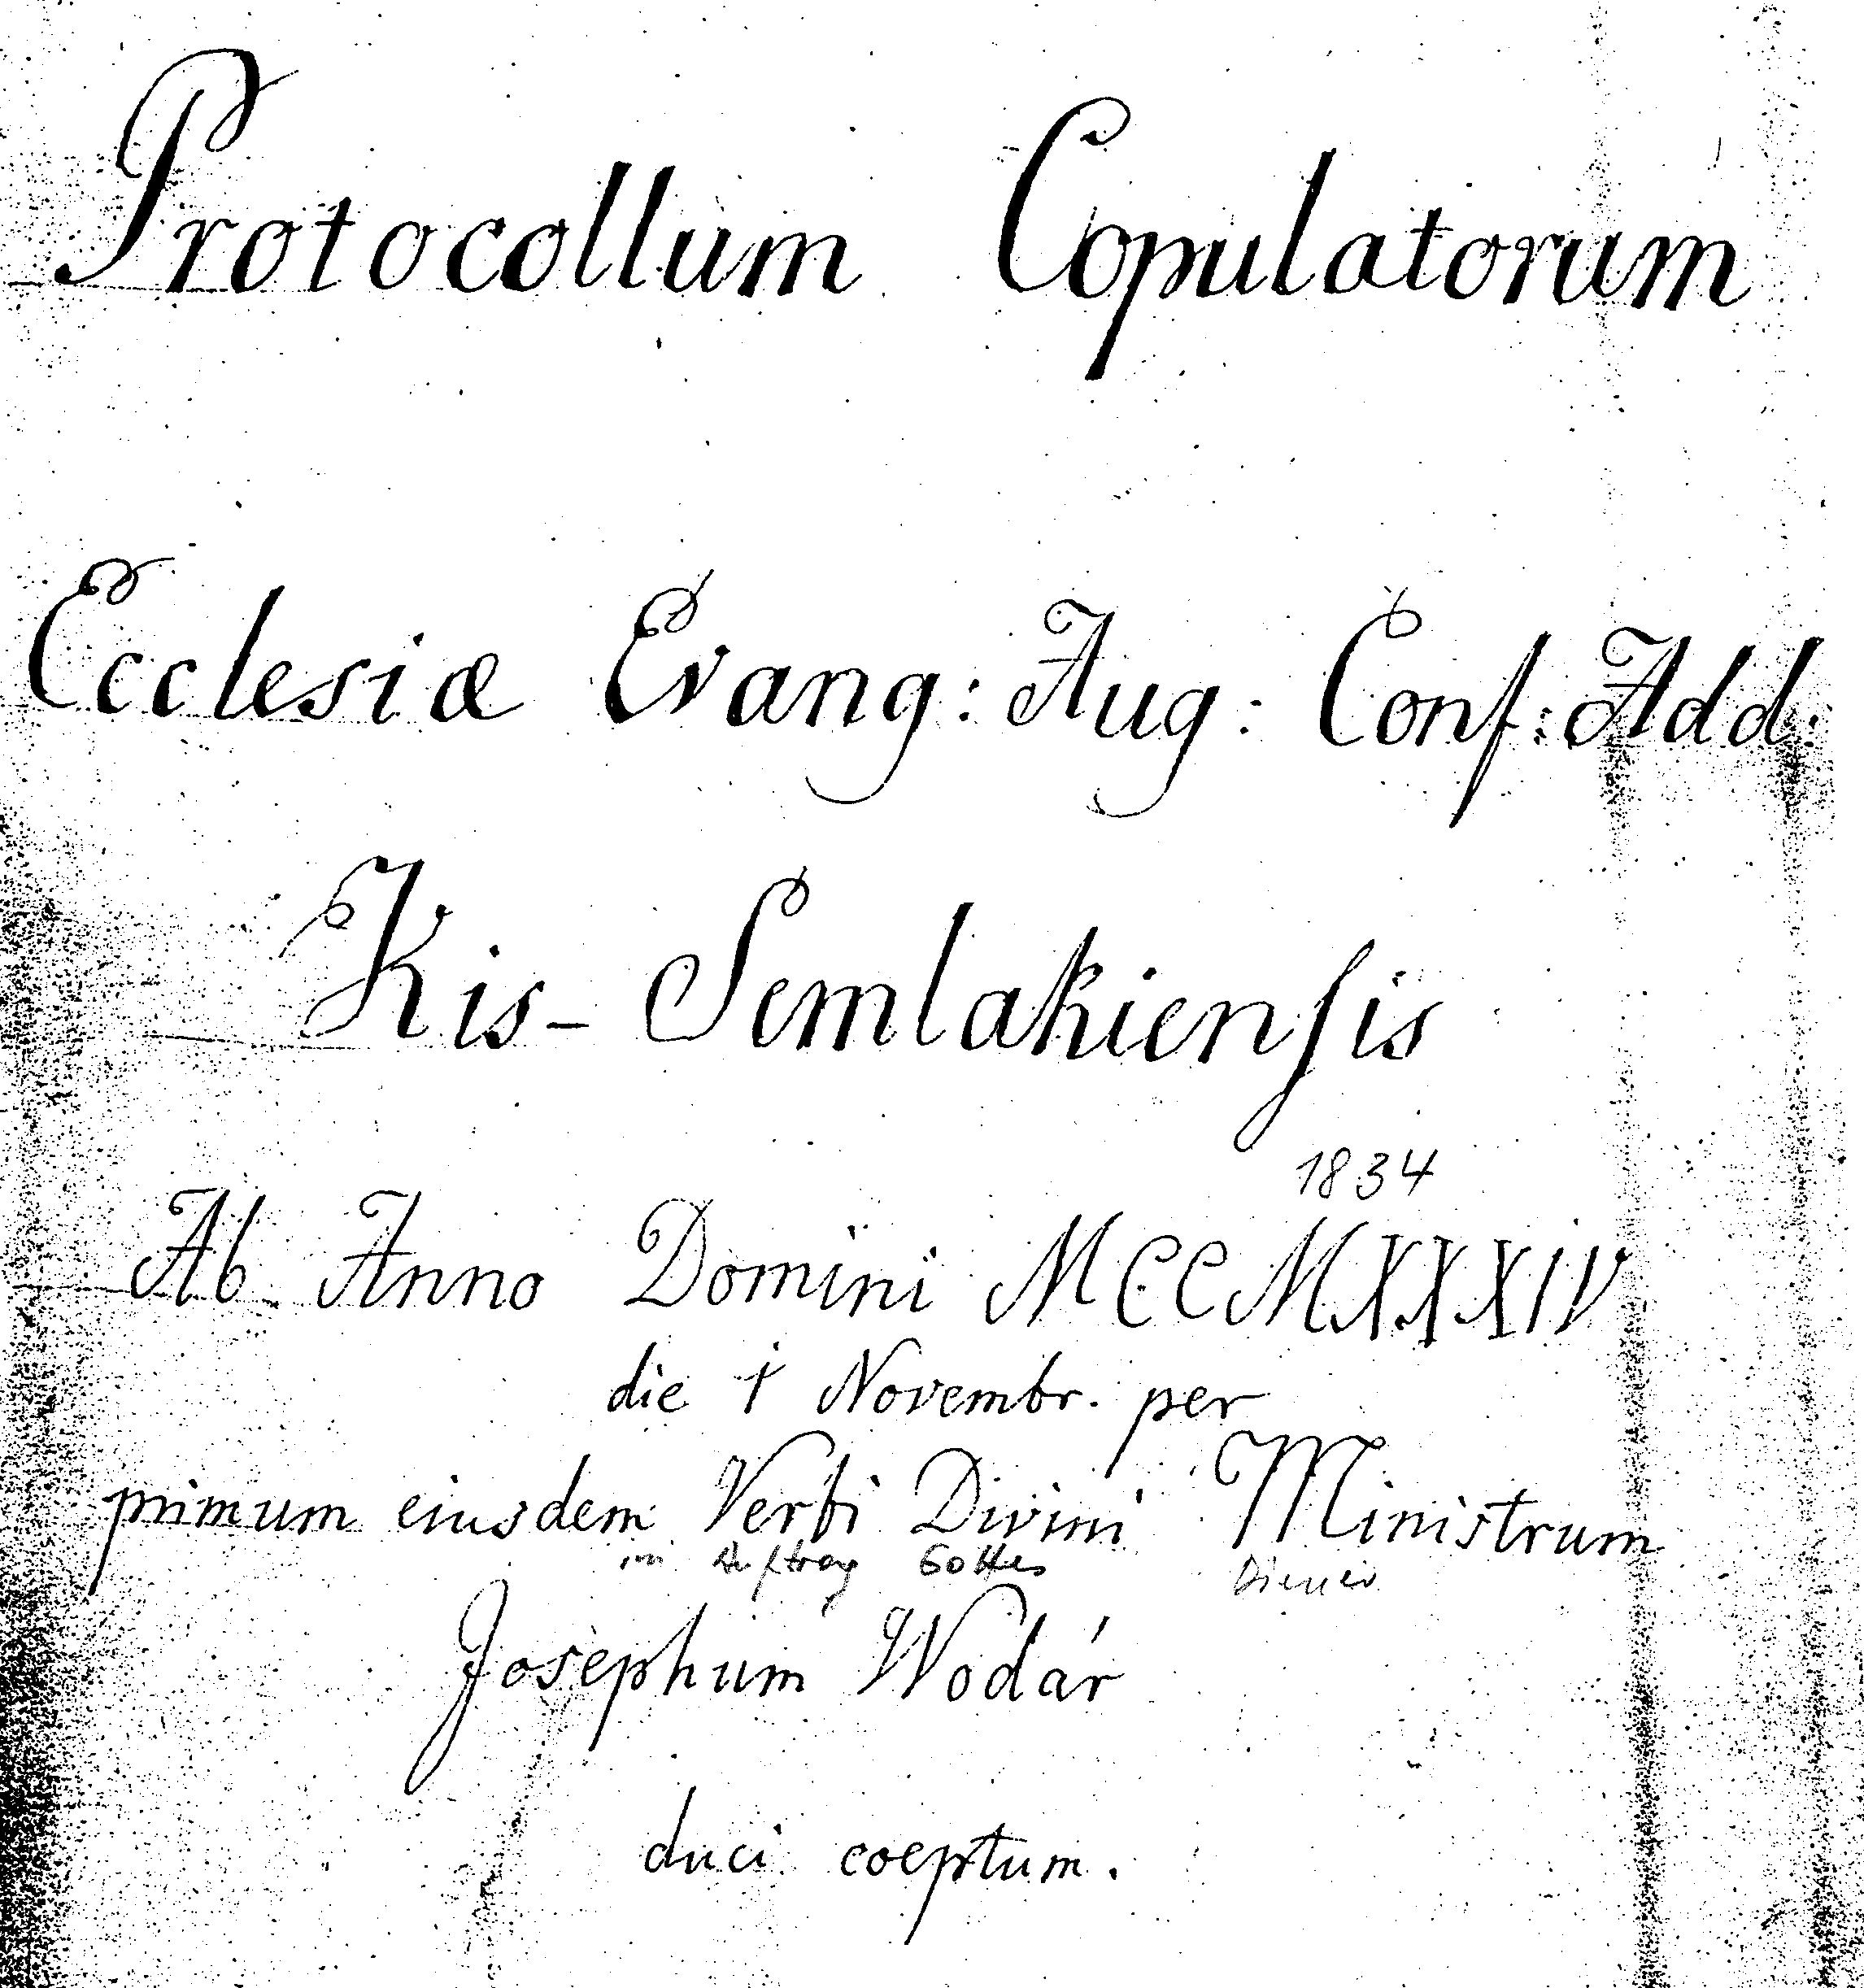 Protocollum Copulatorum
Ecclesiæ Evang: Aug: Conf: Add:
Kis-Semlakiensis
1834
Ab Anno Domini MCCMXXXIV
die 1 Novembr. per
primum eiusdem Verbi Divini Ministrum
im Auftrag Gottes Diener
Josephum Wodár
duci coeptum.